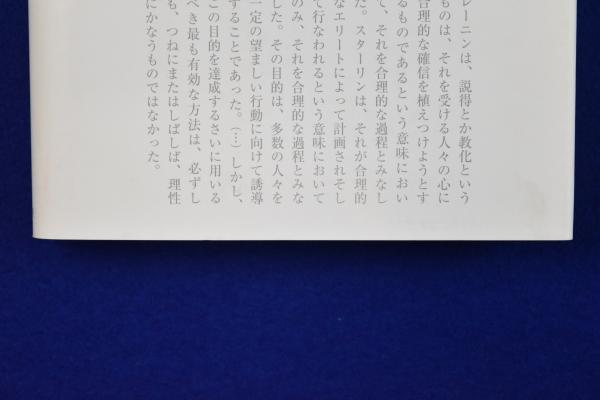 レーニンは、説得とか教化という
ものは、それを受ける人々の心に
合理的な確信を植えつけようとす
るものであるという意味におい
て、それを合理的な過程とみなし
た。スターリンは、それが合理的
なエリートによって計画されそし
て行なわれるという意味において
のみ、それを合理的な過程とみな
した。その目的は、多数の人々を
一定の望ましい行動に向けて誘導
することであった。(…)しかし、
この目的を達成するさいに用いる
べき最も有効な方法は、必ずし
も、つねにまたはしばしば、理性
にかなうものではなかった。